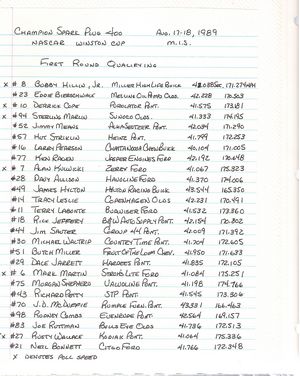 CHAMPION SPARK PLUG 400 AUG. 17-18, 1989
NASCAR WINSTON CUP M.I.S.
FIRST ROUND QUALIFYING
X # 8 BOBBY HILLIN, JR. MILLER HIGH LIFE BUICK
# 23 EDDIE BIERSCHWALE OLDS 42.228
X # 10 DERRIKE COPE PUROLATOR PONT. 41.575 173.181
X # 94 STERLING MARLIN SUNOCO OLDS. 41.333 174.195
# 52 JIMMY MEANS ALKA SELTZER PONT. 42.034 171.290
# 57 HUT STRICKLIN HEINZ PONT. 41.799 172.253
# 16 LARRY PEARSON CHATTANOOGA CHEW BUICK 171.005
# 77 KEN RAGAN JASPER ENGINES FORD 42.192 170.648
X # 7 ALAN KULWICKI ZEREX FORD 41.067 175.323
# 28 DAVEY ALLISON HAVOLINE FORD 41.370 174.006
# 49 JAMES HYLTON HYLTON RACING BUICK 43.544 165.350
# 14 TRACY LESLIE COPENHAGEN OLDS 42.231 170.491
# 11 TERRY LABONTE BUDWEISER FORD 41.532 173.360
# 18 ROD JEFFERY PONT. 42.154 170.802
# 44 JIM SAUTER GROUP 44 PONT. 42.009 171.392
# 30 MICHAEL WALTRIP COUNTRY TIME PONT. 41.704 172.605
# 51 BUTCH MILLER FRUIT OF THE LOOM CHEV. 41.950 171.633
# 29 DALE JARRETT HARDEES PONT. 41.835 172.105
X # 6 MARK MARTIN STROH'S LITE FORD 41.084 175.251
# 75 MORGAN SHEPHERD VALVOLINE PONT. 41.198 174.766
# 43 RICHARD PETTY STP PONT. 41.545 173.306
# 70 J.D. MCDUFFIE RUMPLE FURN. PONT. 166.463
# 98 RODNEY COMBS PONT. 42.564 169.157
# 83 JOE RUTTMAN BULLS EYE OLDS 41.736 172.513
X # 27 RUSTY WALLACE KODIAK PONT. 41.064 175.336
# 21 NEIL BONNETT CITGO FORD 41.766 172.348
X DENOTES POLL SPEED